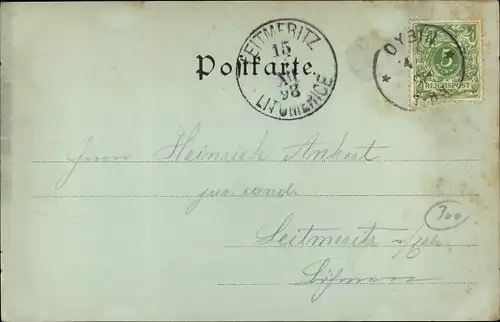 LEITMERITZ
15
XII
98
LITOMĚŘICE
OYBIN
5
REICHSPOST
Postkarte.
Herrn Heinrich Ankert
jur. cand.
Leitmeritz a/Elbe
Böhmen
300